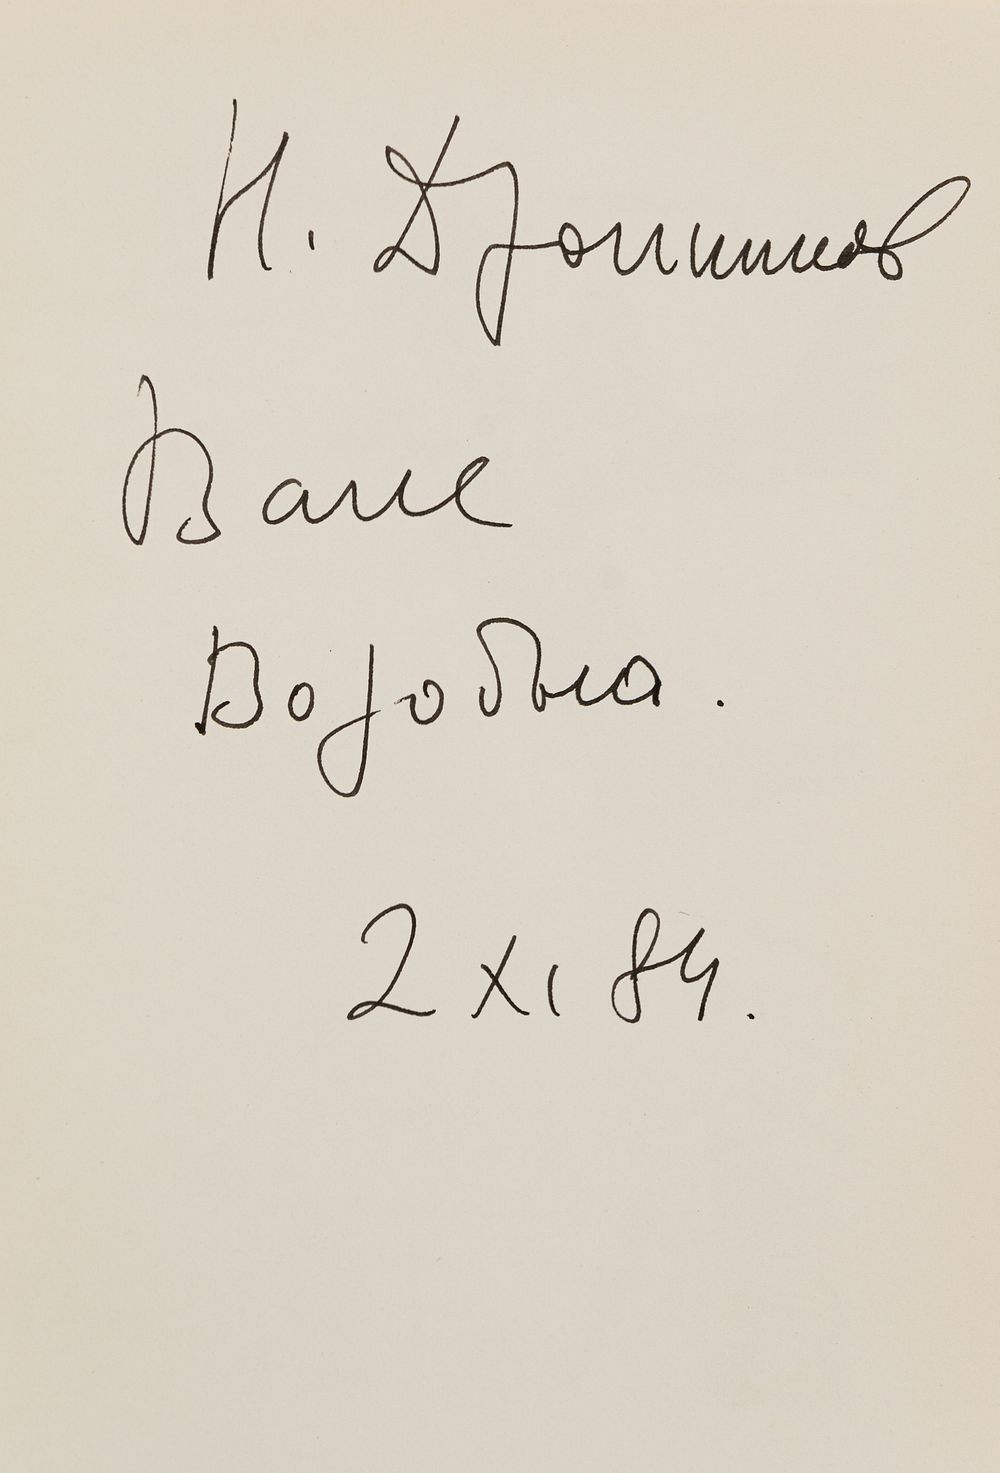 Н. Дронников
Вале
Воробью.
2 XI 84.